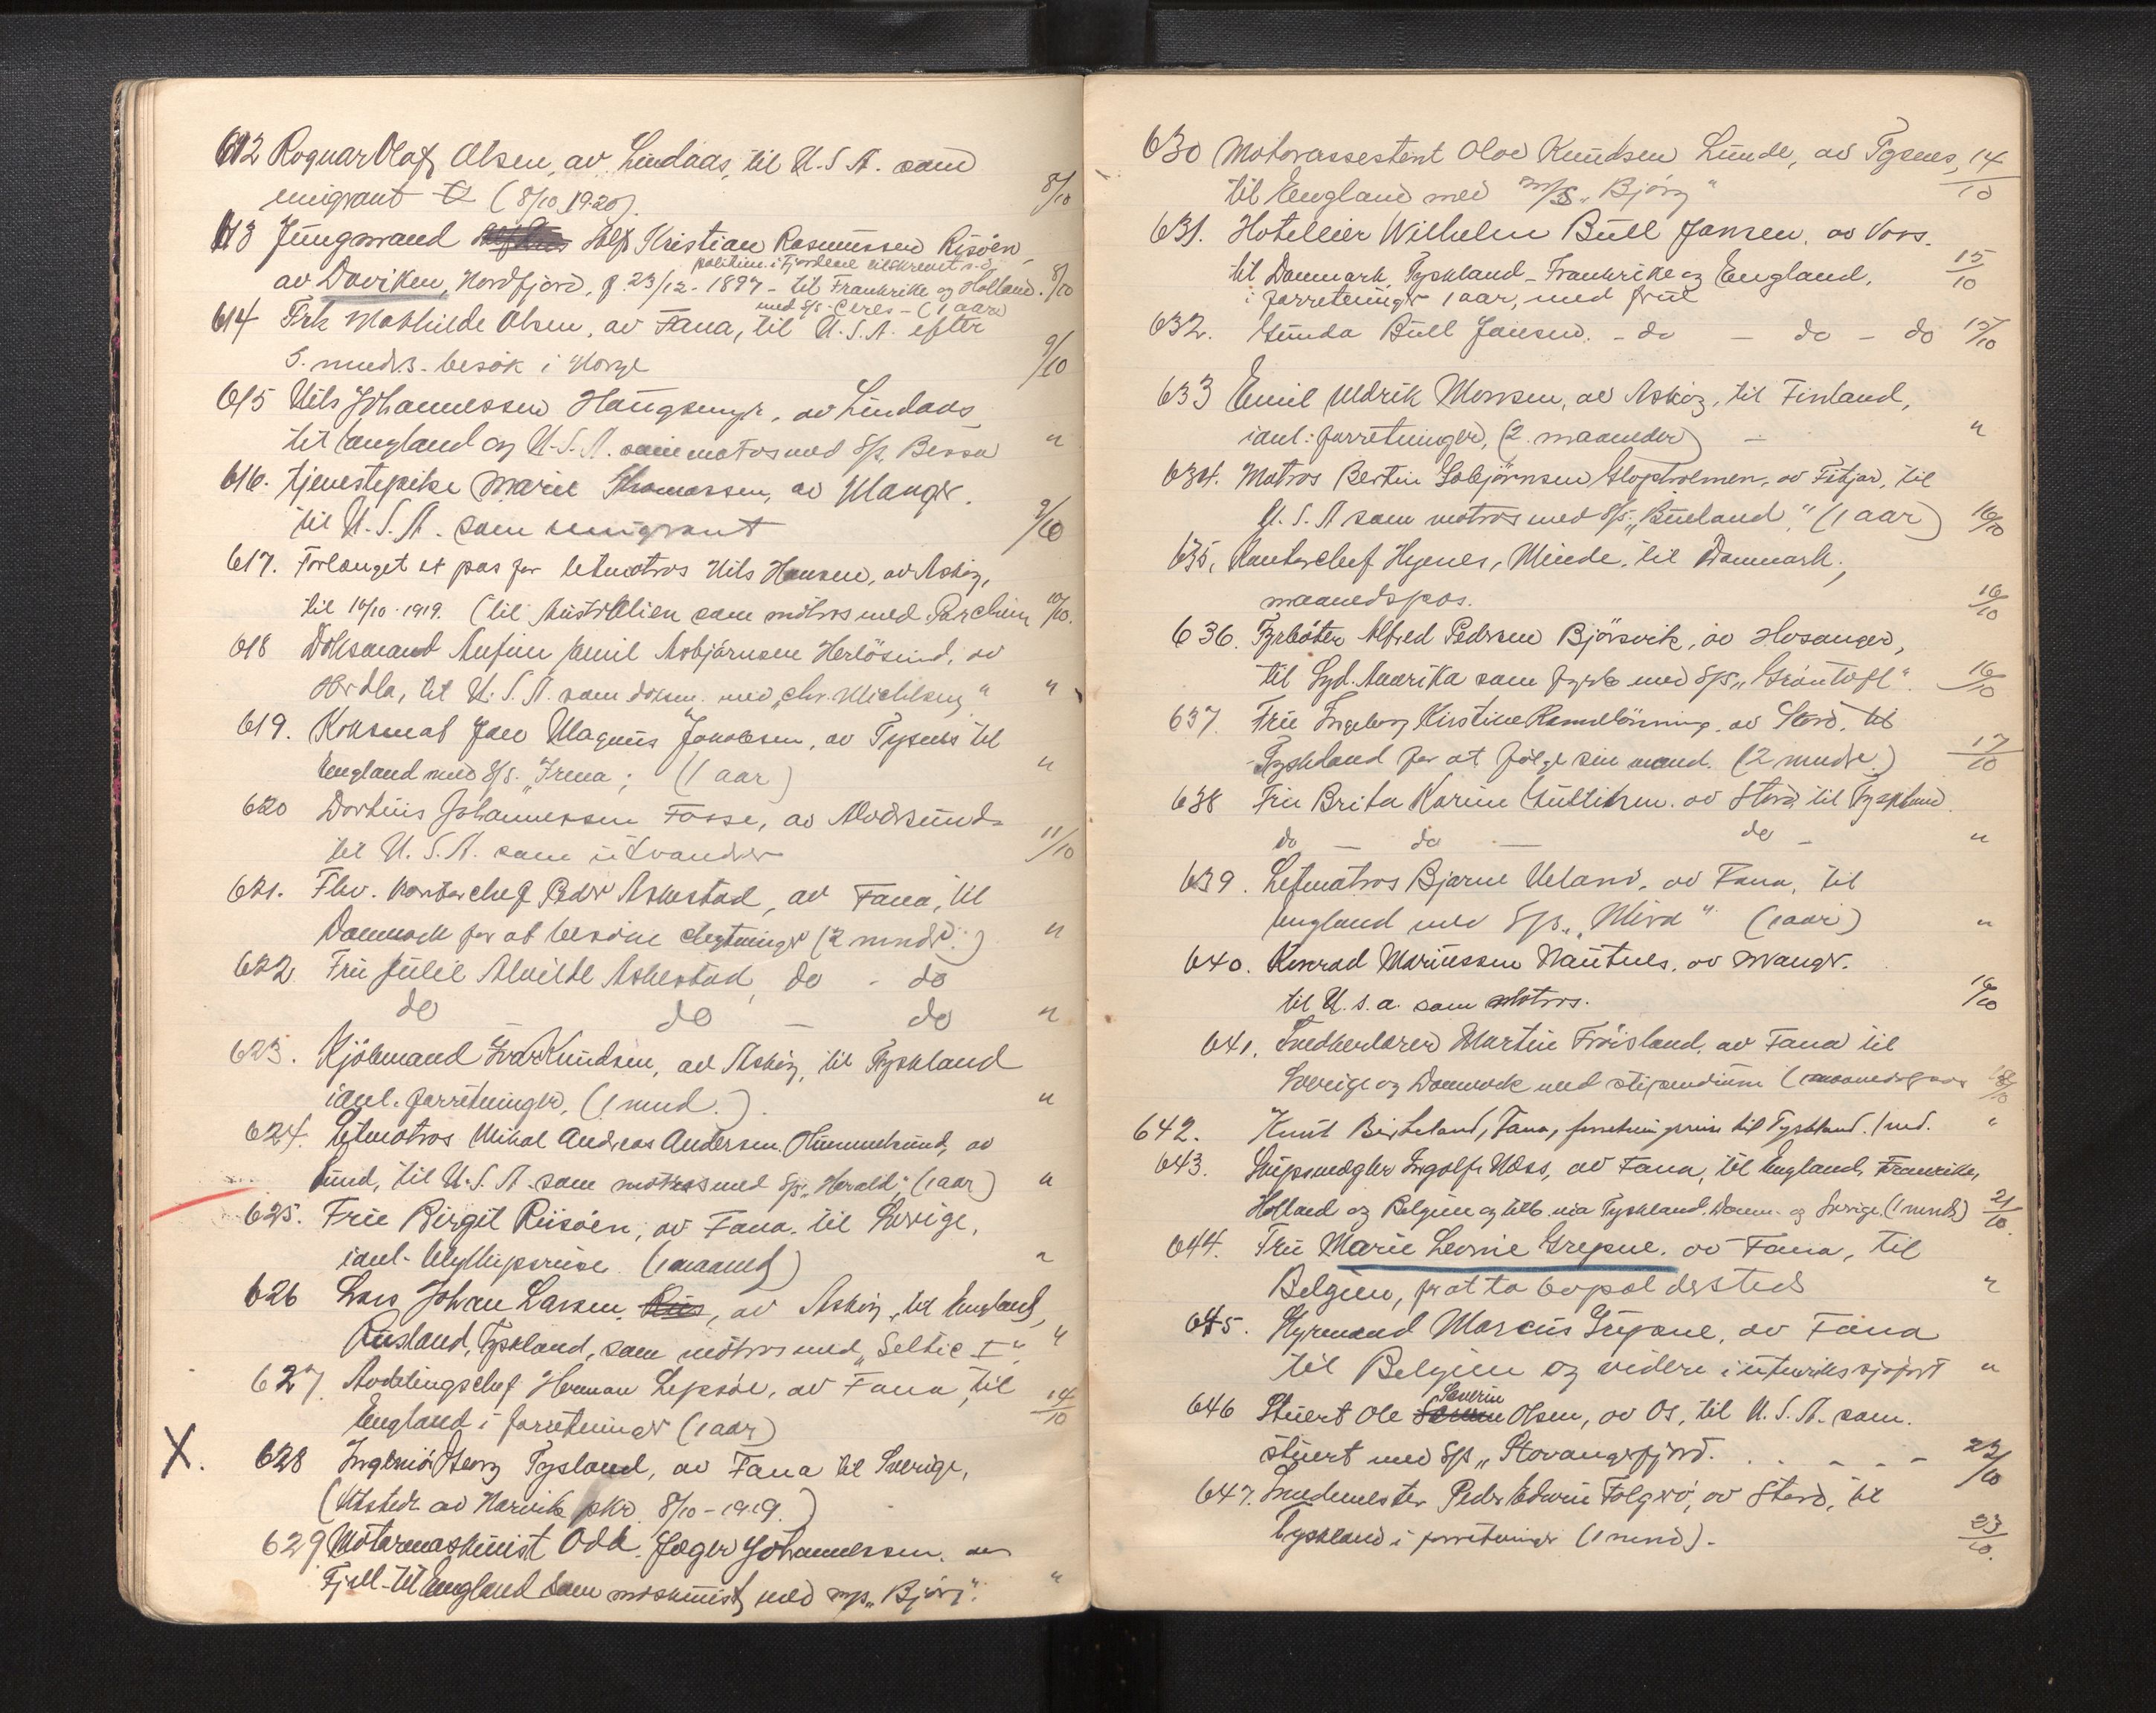 612 Ragnar Olaf Olsen, av Lindaas, til U.S.A. som
emigrant (8/10 1920). 8/10
613 Jungmand Kristian Rasmussen Risöen,
politim. i Fjordene tilskrevet
av Daviken, Nordfjord, f. 23/12-1897 - til Frankrike og Holland. 8/10
med s/s Ceres - (1 aar)
614 Frk Mathilde Olsen, av Fana, til U.S.A. efter
5. mndrs. besök i Norge 9/10
615 Nils Johannessen Haugsmyr, av Lindaas
til England og U.S.A. som matros med S/s. Bessa "
616. tjenestepike Marie Thomassen, av Manger.
til U.S.A. som emigrant 9/10
617. Forlænget et pas for letmatros Nils Hansen, av Askøy,
til 10/10-1919. (til Australien som matros med Parchim 10/10.
618 Dæksmand Anfinn Emil Asbjörnsen Herlösund, av
Herdla, til U.S.A. som dæksm. med "Chr. Michelsen" "
619. Koksmat Jan Magnus Jakobsen, av Tysnes til
England med S/s. "Irma; (1 aar) "
620 Dortius Johannessen Fosse, av Alversund
til U.S.A. som utvandrer 11/10
621. Fhv. kontorchef Peder Askestad, av Fana, til
Danmark for at besöke slegtninger (2 mndr.) "
622 Fru Julie Alvilde Askestad, do - do
do - do - do "
623. Kjöbmand Ivar Knudsen, av Askøy, til Tyskland
i anl. forretninger, (1 mnd.) "
624. Letmatros Mikal Andreas Andersen Hummelsund, av
Sund, til U.S.A. som matros med S/s "Herald" (1 aar) "
625. Frue Birgit Riisöen, av Fana, til Sverige,
i anl. bryllupsreise. (1 maaned) "
626 Lars Johan Larsen, av Askøy, til England,
Rusland, Tyskland, som matros med "Seltic I" "
627 Avdelingschef Herman Lepsöe, av Fana, til
England i forretninger (1 aar) 14/10
X. 628 Ingeniör Georg Tysland, av Fana til Sverige,
(Utstedt av Narvik pkr. 8/10-1919.)
629 Motormaskinist Odd Jæger Johannessen, av
Fjell - til England som maskinist med m/s "Björg". "
630 Motorassistent Olav Knudsen Lunde, av Tysnes, 14/10
til England med m/s "Björg"
631. Hotelleier Wilhelm Bull Jansen, av Voss.
til Danmark, Tyskland - Frankrike og England, 15/10
i forretninger 1 aar, med frue
632. Gunda Bull Jansen. - do - do - do 15/10
633 Emil Uldrik Monsen, av Askøy, til Finland,
i anl: forretninger, (2. maaneder) - "
634. Matros Bertin Gabjörnsen Gloppholmen, av Fitjar, til
U.S.A som matros med S/s. "Bueland," (1 aar) 16/10
635, Kontorchef Hyenes, Minde, til Danmark,
maanedspas. 16/10
636. Fyrböter Alfred Pedersen Björsvik, av Hosanger,
til Syd. Amerika som fyrb. med S/s "Gröntoft". 16/10
637. Frue Ingeborg Kirstine Rommelönning, av Stord, til
Tyskland for at fölge sin mand. (2 mndr.) 17/10
638 Fru Brita Karine av Stord, til Tyskland.
do - do - do - "
639. Letmatros Bjarne Ueland, av Fana, til
England med S/s. "Mira" (1 aar) "
640. Konrad Mariussen Nautnes, av Manger.
til U.S.a. som matros. 16/10
641. Snedkerlærer Martin Fröisland, av Fana til
Sverige og Danmark med stipendium (maanedspas 18/10
642. Knut Birkeland, Fana, forretningsreise til Tyskland. 1 md. "
643. Skipsmægler Ingolf Næss, av Fana, til England, Frankrike,
Holland og Belgien og tilb. via Tyskland. Danm. og Sverige. (1 mnd) 21/10
644. Fru Marie Leonie Grepne, av Fana, til
Belgien, for at ta bopæl dersteds "
645. Styrmand Marcus Grepne, av Fana
til Belgien og videre i utenriks sjöfart "
Severin
646 Stuert Ole Olsen, av Os, til U.S.A. som.
stuert med S/s "Stavangerfjord. . . - - - 22/10
647. Smedmester Peder Edvin Folgerö, av Stord, til
Tyskland i forretninger (1 mnd). - 23/10.